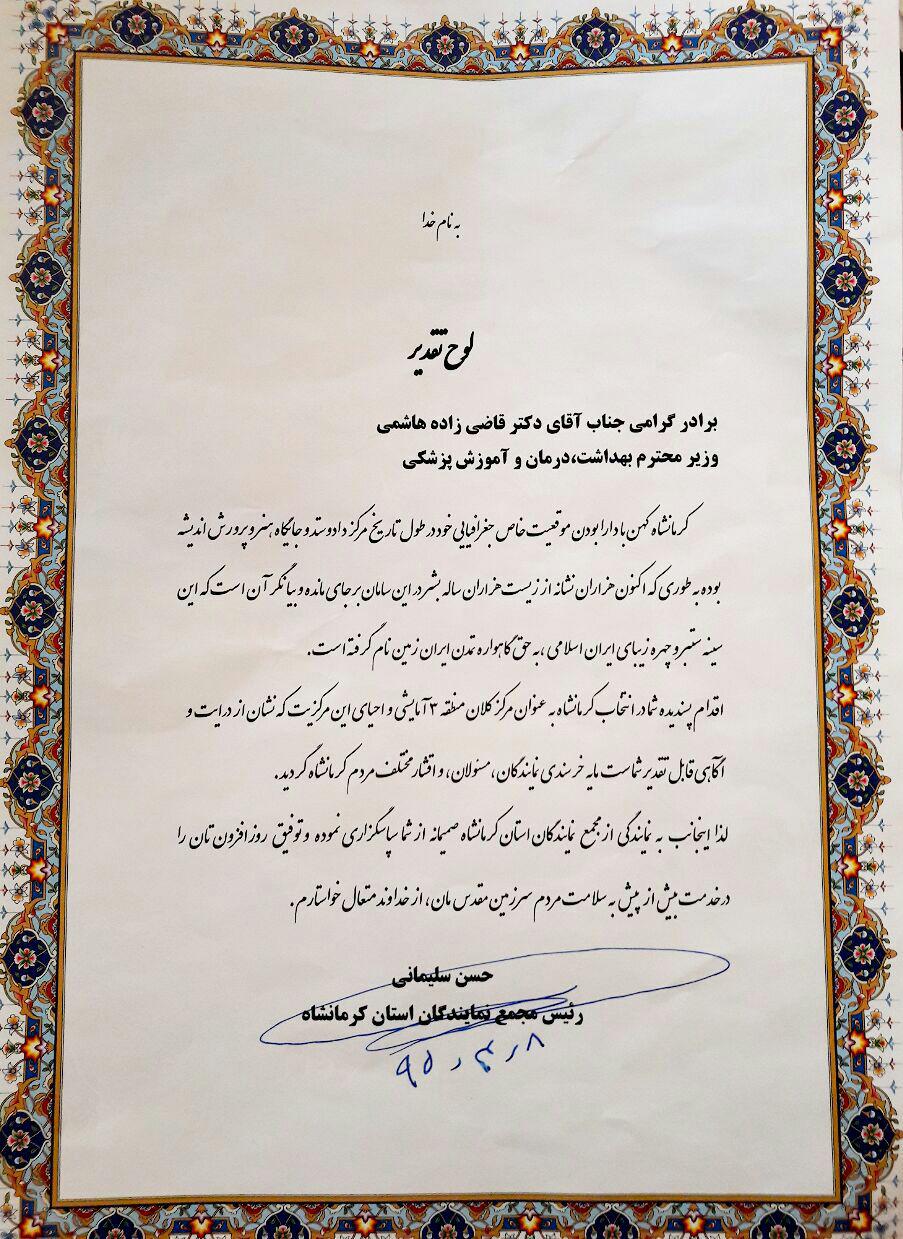 به نام خدا
لوح تقدیر
برادر گرامی جناب آقای دکتر قاضی زاده هاشمی
وزیر محترم بهداشت،درمان و آموزش پزشکی
کرمانشاه کهن با دارا بودن موقعیت خاص جغرافیایی خود در طول تاریخ مرکز داد و ستد و جایگاه هنر و پرورش اندیشه
بوده به طوری که اکنون هزاران نشانه از زیست هزاران ساله بشر در این سامان بر جای مانده و بیانگر آن است که این
سینه ستبر و چهره زیبای ایران اسلامی ،به حق گاهواره تمدن ایران زمین نام گرفته است.
اقدام پسندیده شما در انتخاب کرمانشاه به عنوان مرکز کلان منطقه ۳ آمایشی و احیای این مرکزیت که نشان از درایت و
آگاهی قابل تقدیر شماست مایه خرسندی نمایندگان، مسئولان، و اقشار مختلف مردم کرمانشاه گردید.
لذا اینجانب به نمایندگی از مجمع نمایندگان استان کرمانشاه صمیمانه از شما سپاسگزاری نموده و توفیق روز افزون تان را
در خدمت بیش از پیش به سلامت مردم سرزمین مقدس مان، از خداوند متعال خواستارم.
حسن سلیمانی
رئیس مجمع نمایندگان استان کرمانشاه